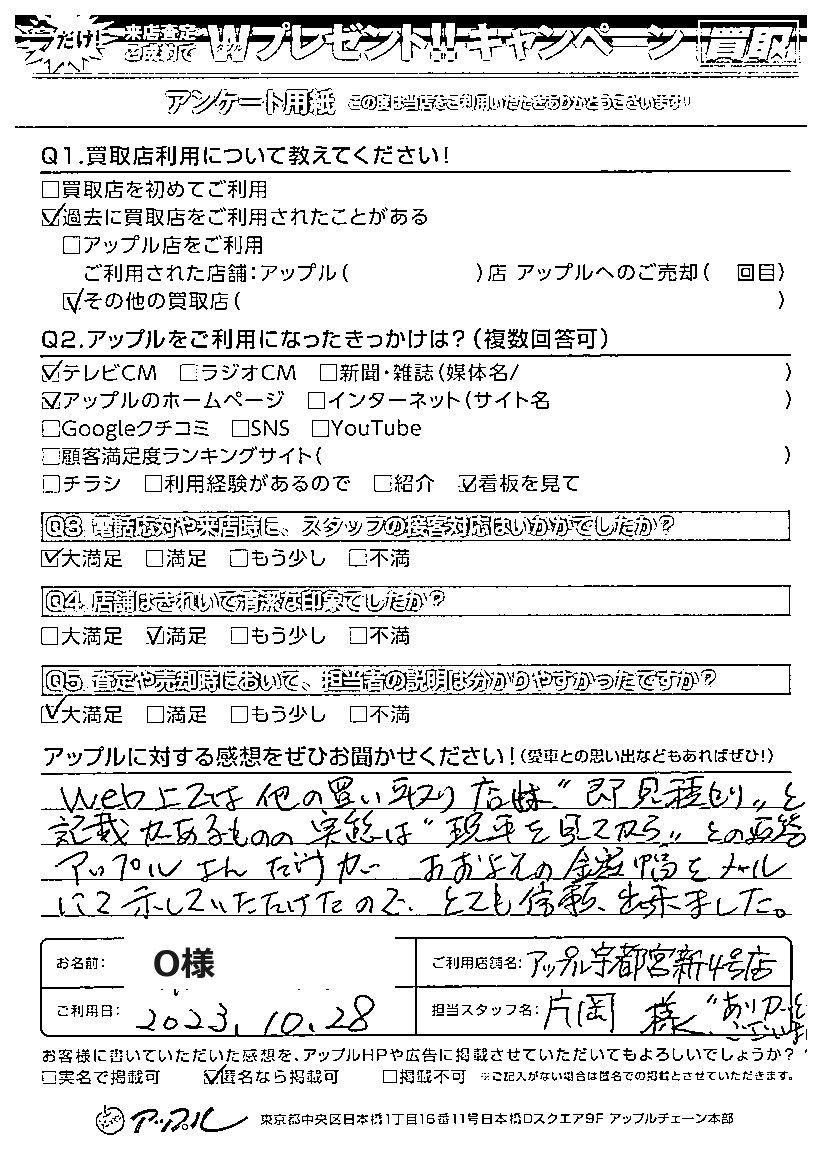 だけ! 来店査定ご成約で Wプレゼント!!キャンペーン 買取
アンケート用紙 この度は当店をご利用いただきありがとうございます!
Q1.買取店利用について教えてください!
□買取店を初めてご利用
☑過去に買取店をご利用されたことがある
□アップル店をご利用
ご利用された店舗:アップル( )店 アップルへのご売却( 回目)
☑その他の買取店( )
Q2.アップルをご利用になったきっかけは?(複数回答可)
☑テレビCM □ラジオCM □新聞・雑誌(媒体名/ )
☑アップルのホームページ □インターネット(サイト名 )
□Googleクチコミ □SNS □YouTube
□顧客満足度ランキングサイト( )
□チラシ □利用経験があるので □紹介 ☑看板を見て
Q3.電話応対や来店時に、スタッフの接客対応はいかがでしたか?
☑大満足 □満足 □もう少し □不満
Q4.店舗はきれいで清潔な印象でしたか?
□大満足 ☑満足 □もう少し □不満
Q5.査定や売却時において、担当者の説明は分かりやすかったですか?
☑大満足 □満足 □もう少し □不満
アップルに対する感想をぜひお聞かせください!(愛車との思い出などもあればぜひ!)
Web上では他の買い取り店は"即見積り"と
記載があるものの実態は"現車を見てから"との返答
アップルさんだけが おおよその金額幅をメール
にて示していただけたので、とても信頼出来ました。
お名前: O様 ご利用店舗名:アップル宇都宮新4号店
ご利用日: 2023.10.28 担当スタッフ名:片岡 様 "ありがと
ございま
お客様に書いていただいた感想を、アップルHPや広告に掲載させていただいてもよろしいでしょうか?
□実名で掲載可 ☑匿名なら掲載可 □掲載不可 ※ご記入がない場合は匿名での掲載とさせていただきます。
アップル 東京都中央区日本橋1丁目16番11号日本橋Dスクエア9F アップルチェーン本部